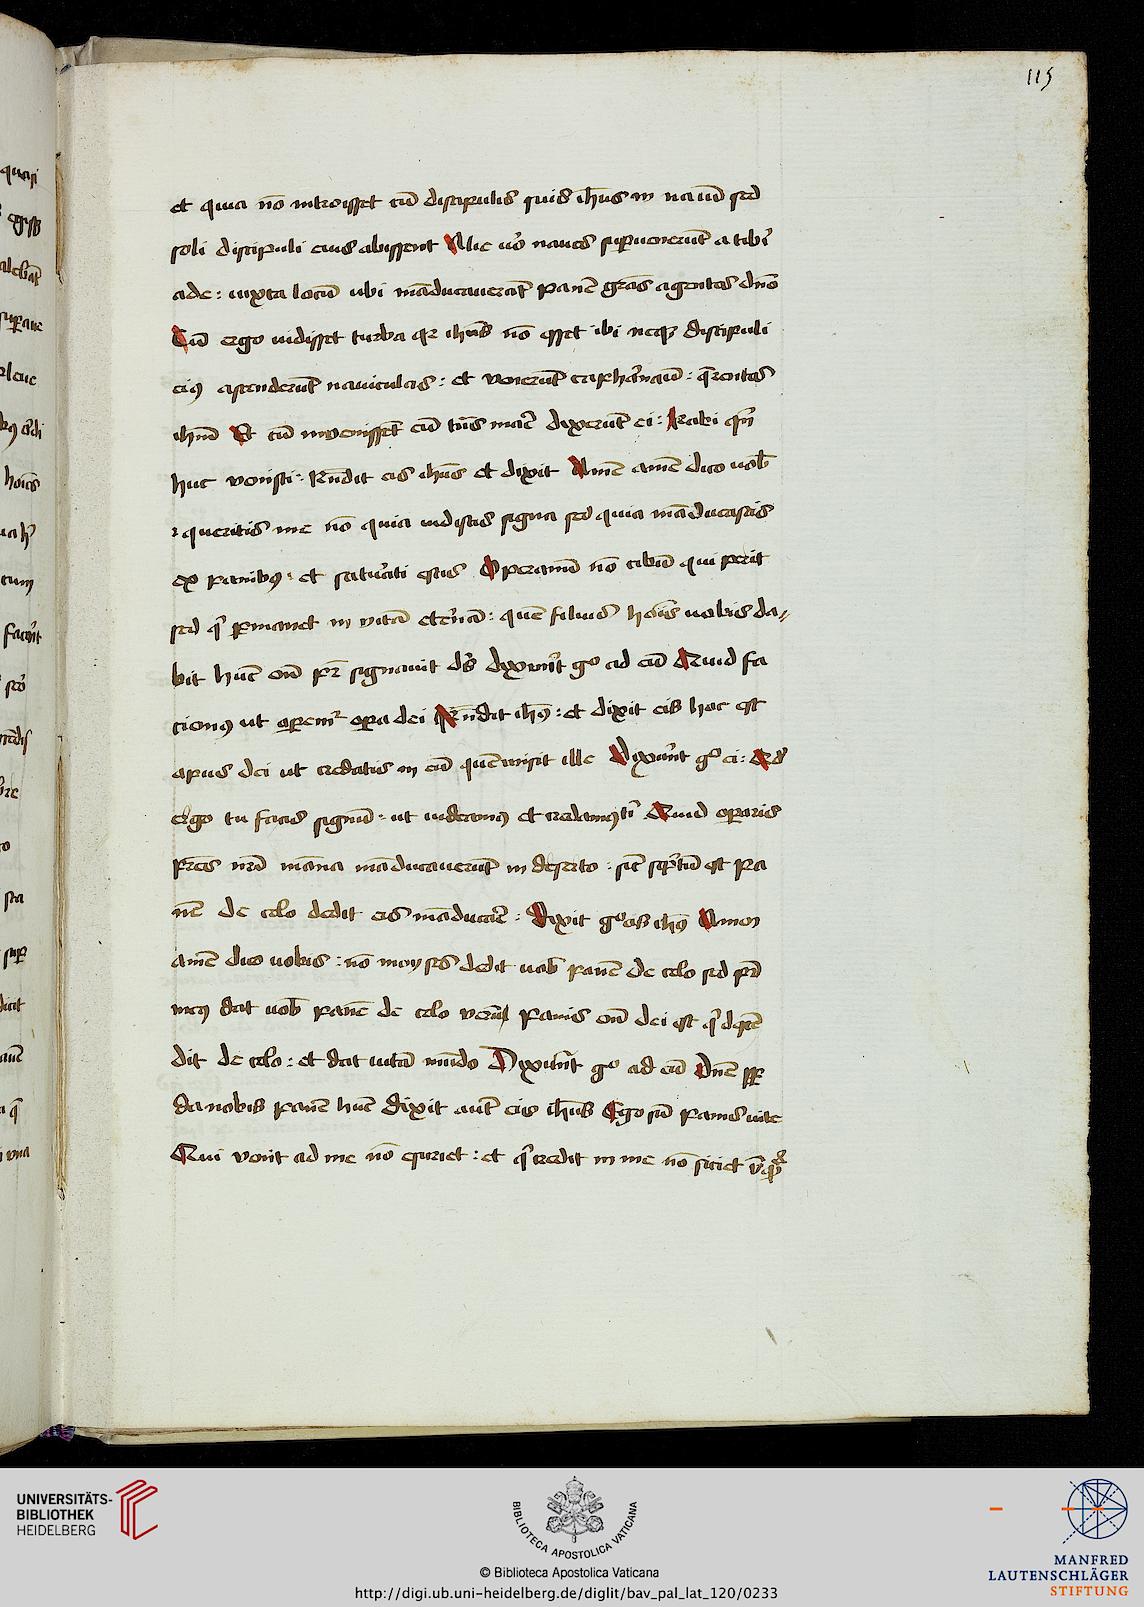 115
et quia nō introisset cū discipulis suis ih̄us in nauī sed
soli discipuli eius abissent Alie u̓o naues sup̱uenerūt a tib̓i
ade : iuxta locū ubi māducauerāt panē gr̄as agentes dn̄o
Cū ergo uidisset turba qꝛ ih̄us nō esset ibi neqꝫ discipuli
eiꝰ ascenderūt nauiculas : et venerūt capharnaū : q̄rentes
ih̄m Et cū inuenissēt eū tn̄s mar̄ dixerūt ei : Rabi qn̄
huc venisti : Rn̄dit eis ih̄us et dixit Amē amē dico uob̄
queritis me nō quia uidistis signa sed quia māducastis
ex panibꝰ : et saturati estis Operamī nō cibū qui perit
sed q̓ p̱manet in vitā et̓nā : quē filius hoīs uobis da
bit hūc eī pr̄ signauit ds̄ dixerūt g̊ ad eū Quid fa
ciemꝰ ut op̱emur op̱a dei Rn̄dit ih̄s : et dixit eis hoc est
opus dei ut credatis in eū quē misit ille Dixerūt g̊ ei : Qd̓
ergo tu facis signū : ut uideamꝰ et credamꝰ t̓ Quid op̱aris
pr̄es nr̄i māna māducauerūt in deserto : sic̄ sc̓ptū est pa
nē de celo dedit eis māducar̄ : Dixit g̊ eis ih̄s Amen
amē dico uobis : nō moyses dedit uob̄ panē de celo sed pr̄
meꝰ dat uob̄ panē de celo verū Panis eī dei est q̓ desc̄e
dit de celo : et dat uitā mūdo Dixerūt g̊ ad eū Dn̄e
da nobis panē hūc Dixit aut̄ eis ih̄us Ego sū panis uite
Qui venit ad me nō esuriet : et q̓ credit in me nō sitiet
UNIVERSITÄTS-
BIBLIOTHEK
HEIDELBERG
BIBLIOTECA APOSTOLICA VATICANA
© Biblioteca Apostolica Vaticana
http://digi.ub.uni-heidelberg.de/diglit/bav_pal_lat_120/0233
MANFRED
LAUTENSCHLÄGER
STIFTUNG